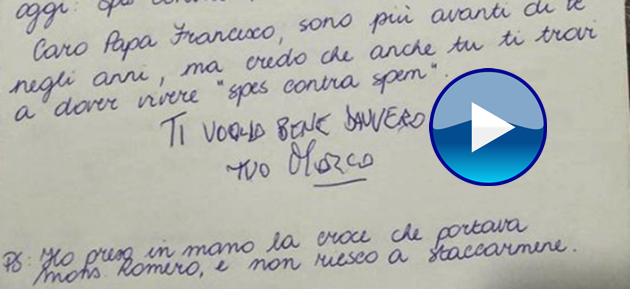 oggi: spes contra
Caro Papa Francesco, sono più avanti di te
negli anni, ma credo che anche tu ti trovi
a dover vivere "spes contra spem".
TI VOGLIO BENE DAVVERO
TUO Marco
PS: Ho preso in mano la croce che portava
mons. Romero, e non riesco a staccarmene.